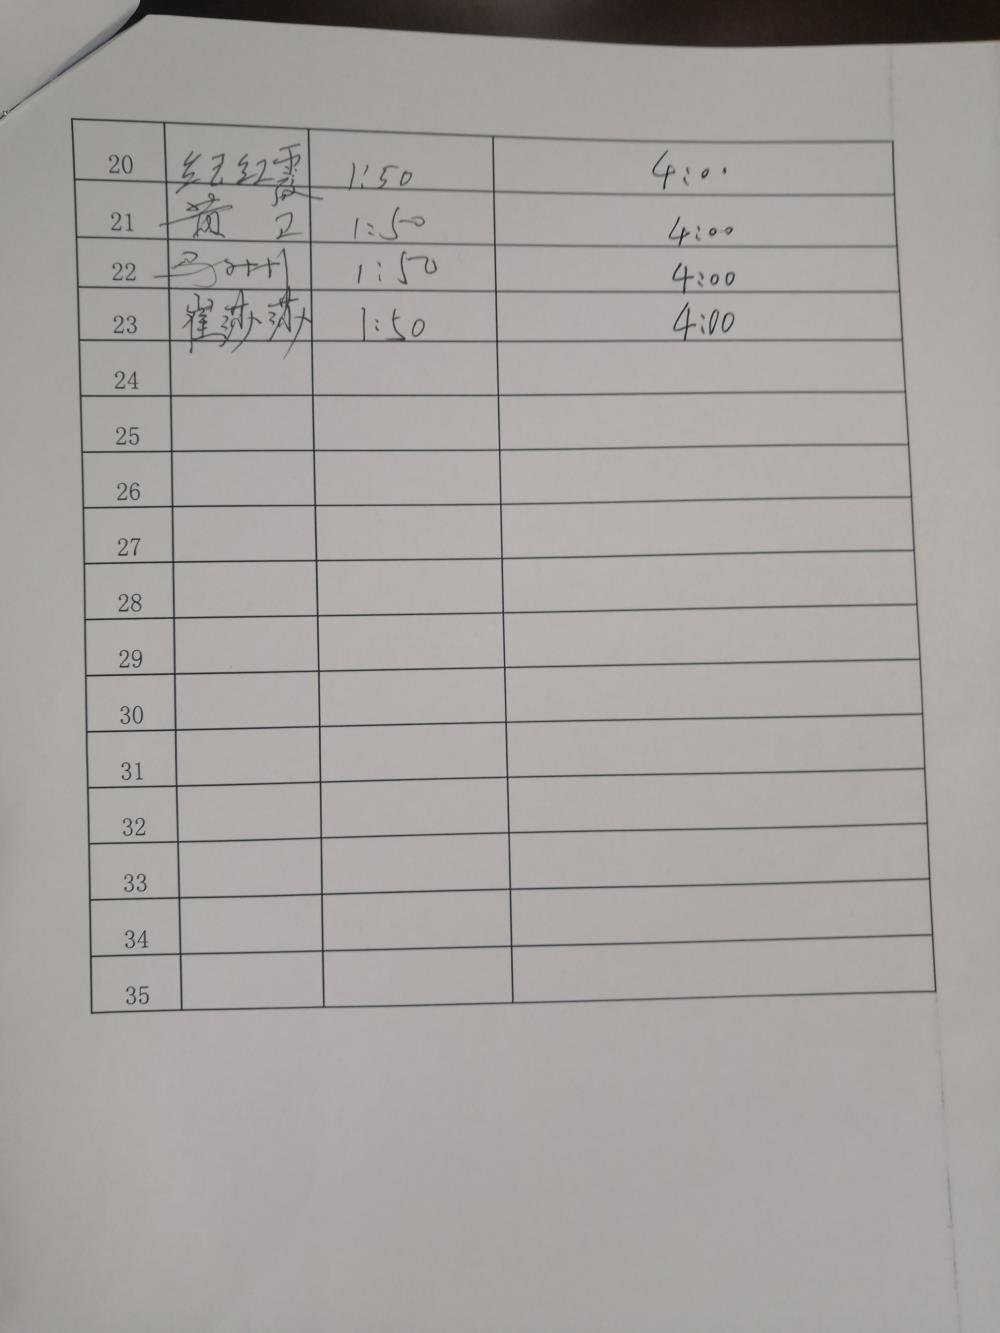 20 纪红霞 1:50 4:00
21 黄卫 1:50 4:00
22 1:50 4:00
23 崔莎莎 1:50 4:00
24
25
26
27
28
29
30
31
32
33
34
35